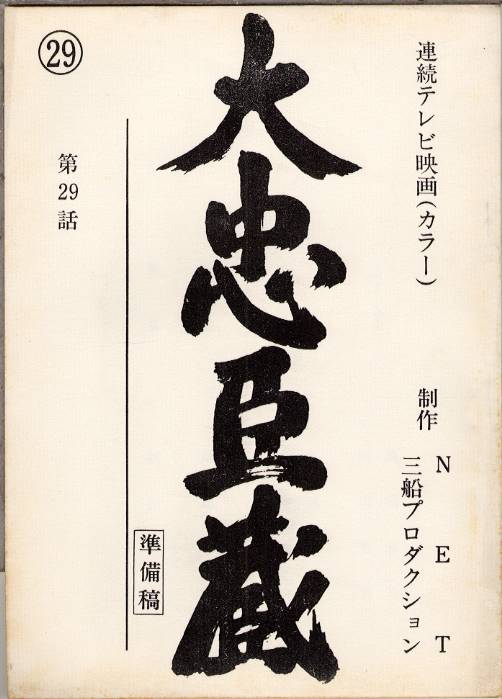 連続テレビ映画(カラー)
制作
NET
三船プロダクション
大忠臣蔵
準備稿
第29話
㉙